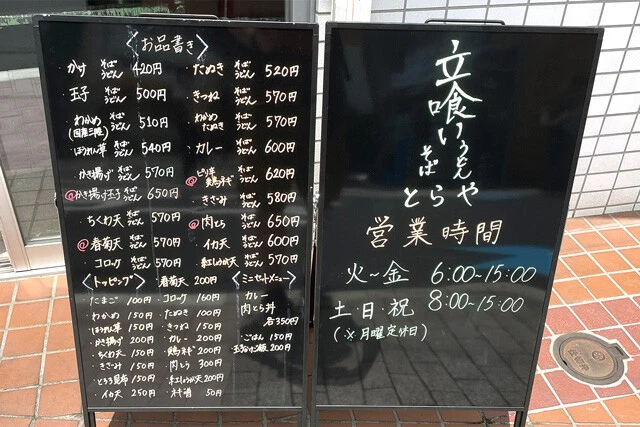 〈お品書き〉
・かけ そば うどん 420円
・玉子 そば うどん 500円
・わかめ (国産三陸) そば うどん 510円
・ほうれん草 そば うどん 540円
・かき揚げ そば うどん 570円
@かき揚げ玉子 そば うどん 650円
・ちくわ天 そば うどん 570円
@春菊天 そば うどん 570円
・コロッケ そば うどん 570円
・たぬき そば うどん 520円
・きつね そば うどん 570円
・わかめ たぬき そば うどん 570円
・カレー そば うどん 600円
@ピリ辛 そば うどん 620円
・きざみ そば うどん 580円
@肉とら そば うどん 650円
・イカ天 そば うどん 600円
・紅しょうが天 そば うどん 570円
〈トッピング〉
・たまご 100円
・わかめ 150円
・ほうれん草 150円
・かき揚げ 200円
・ちくわ天 150円
・きざみ 150円
・とろろ昆布 150円
・イカ天 250円
・春菊天 200円
・コロッケ 160円
・たぬき 100円
・きつね 150円
・カレー 200円
・鶏つみ 200円
・肉とら 300円
・紅しょうが天 200円
50円
〈ミニセットメニュー〉
カレー
肉とら丼
各350円
・ごはん 150円
・玉子かけご飯 200円
立喰い
そば
うどんや
とら
営業時間
火～金 6:00~15:00
土・日・祝 8:00~15:00
(※月曜定休日)